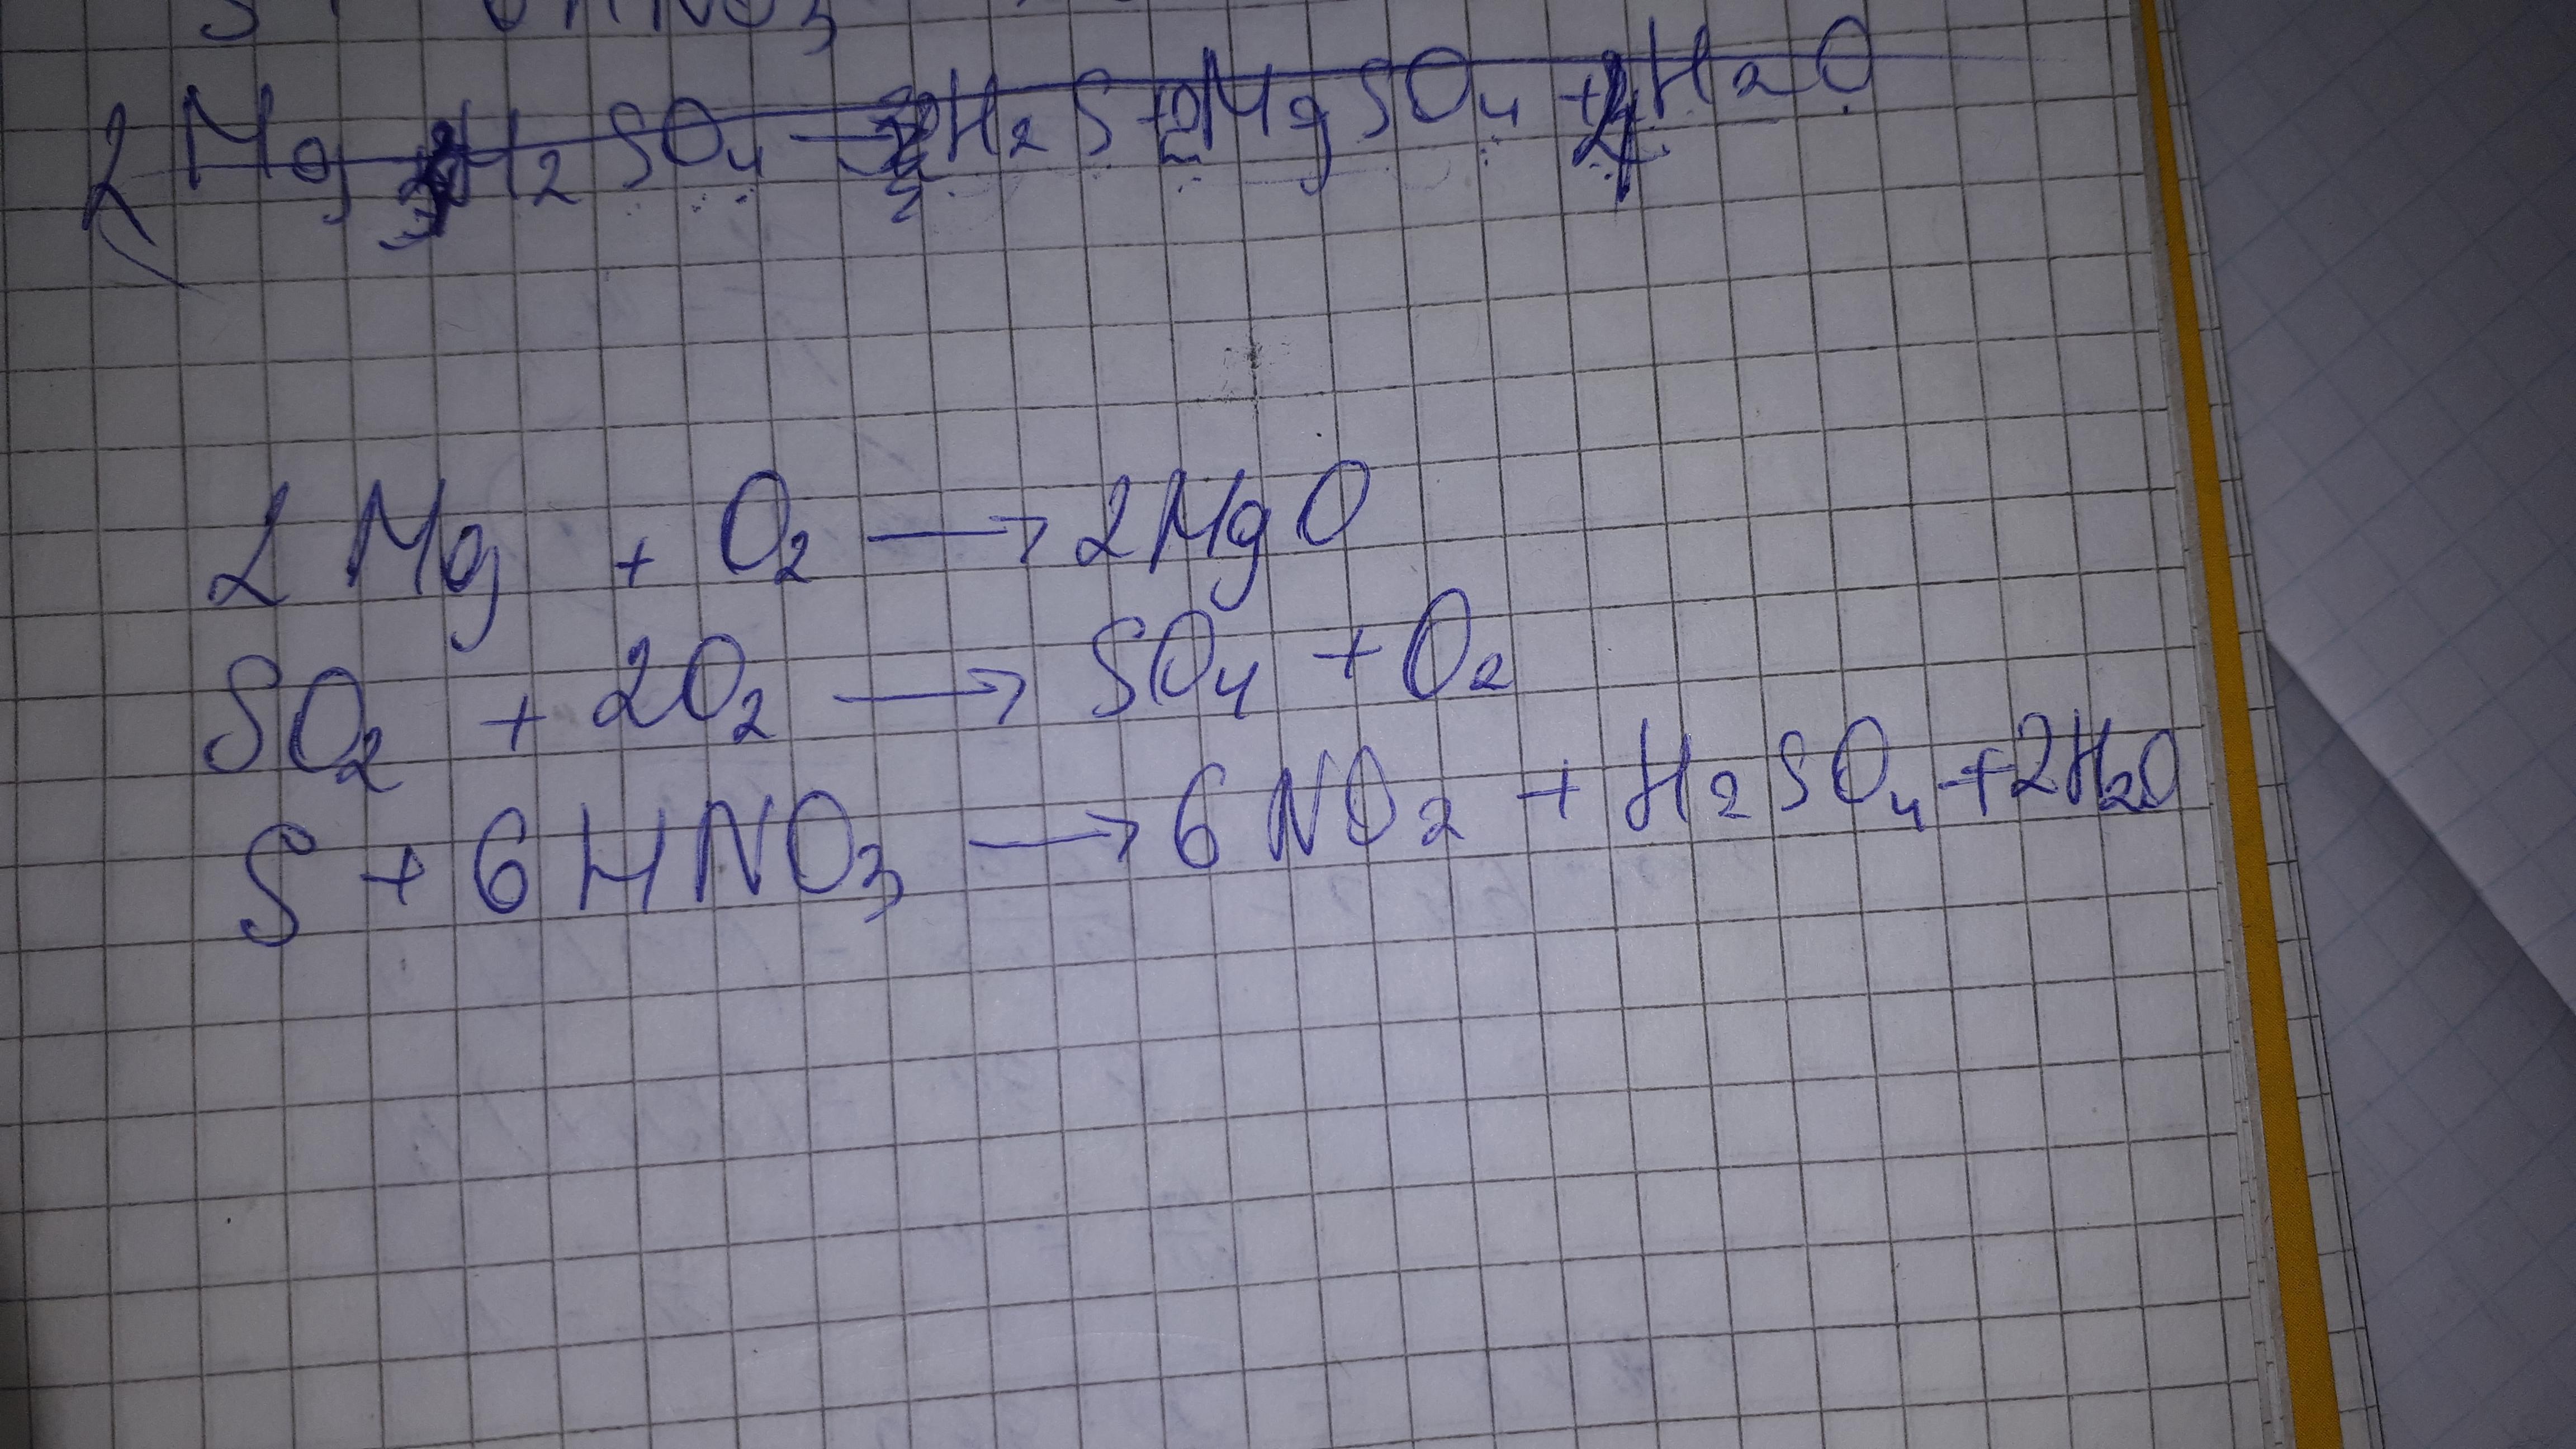 HNO3
2Mg H2SO4 → H2S + 2MgSO4 + H2O
2Mg + O2 → 2MgO
SO2 + 2O2 → SO4 + O2
S + 6HNO3 → 6NO2 + H2SO4 + 2H2O